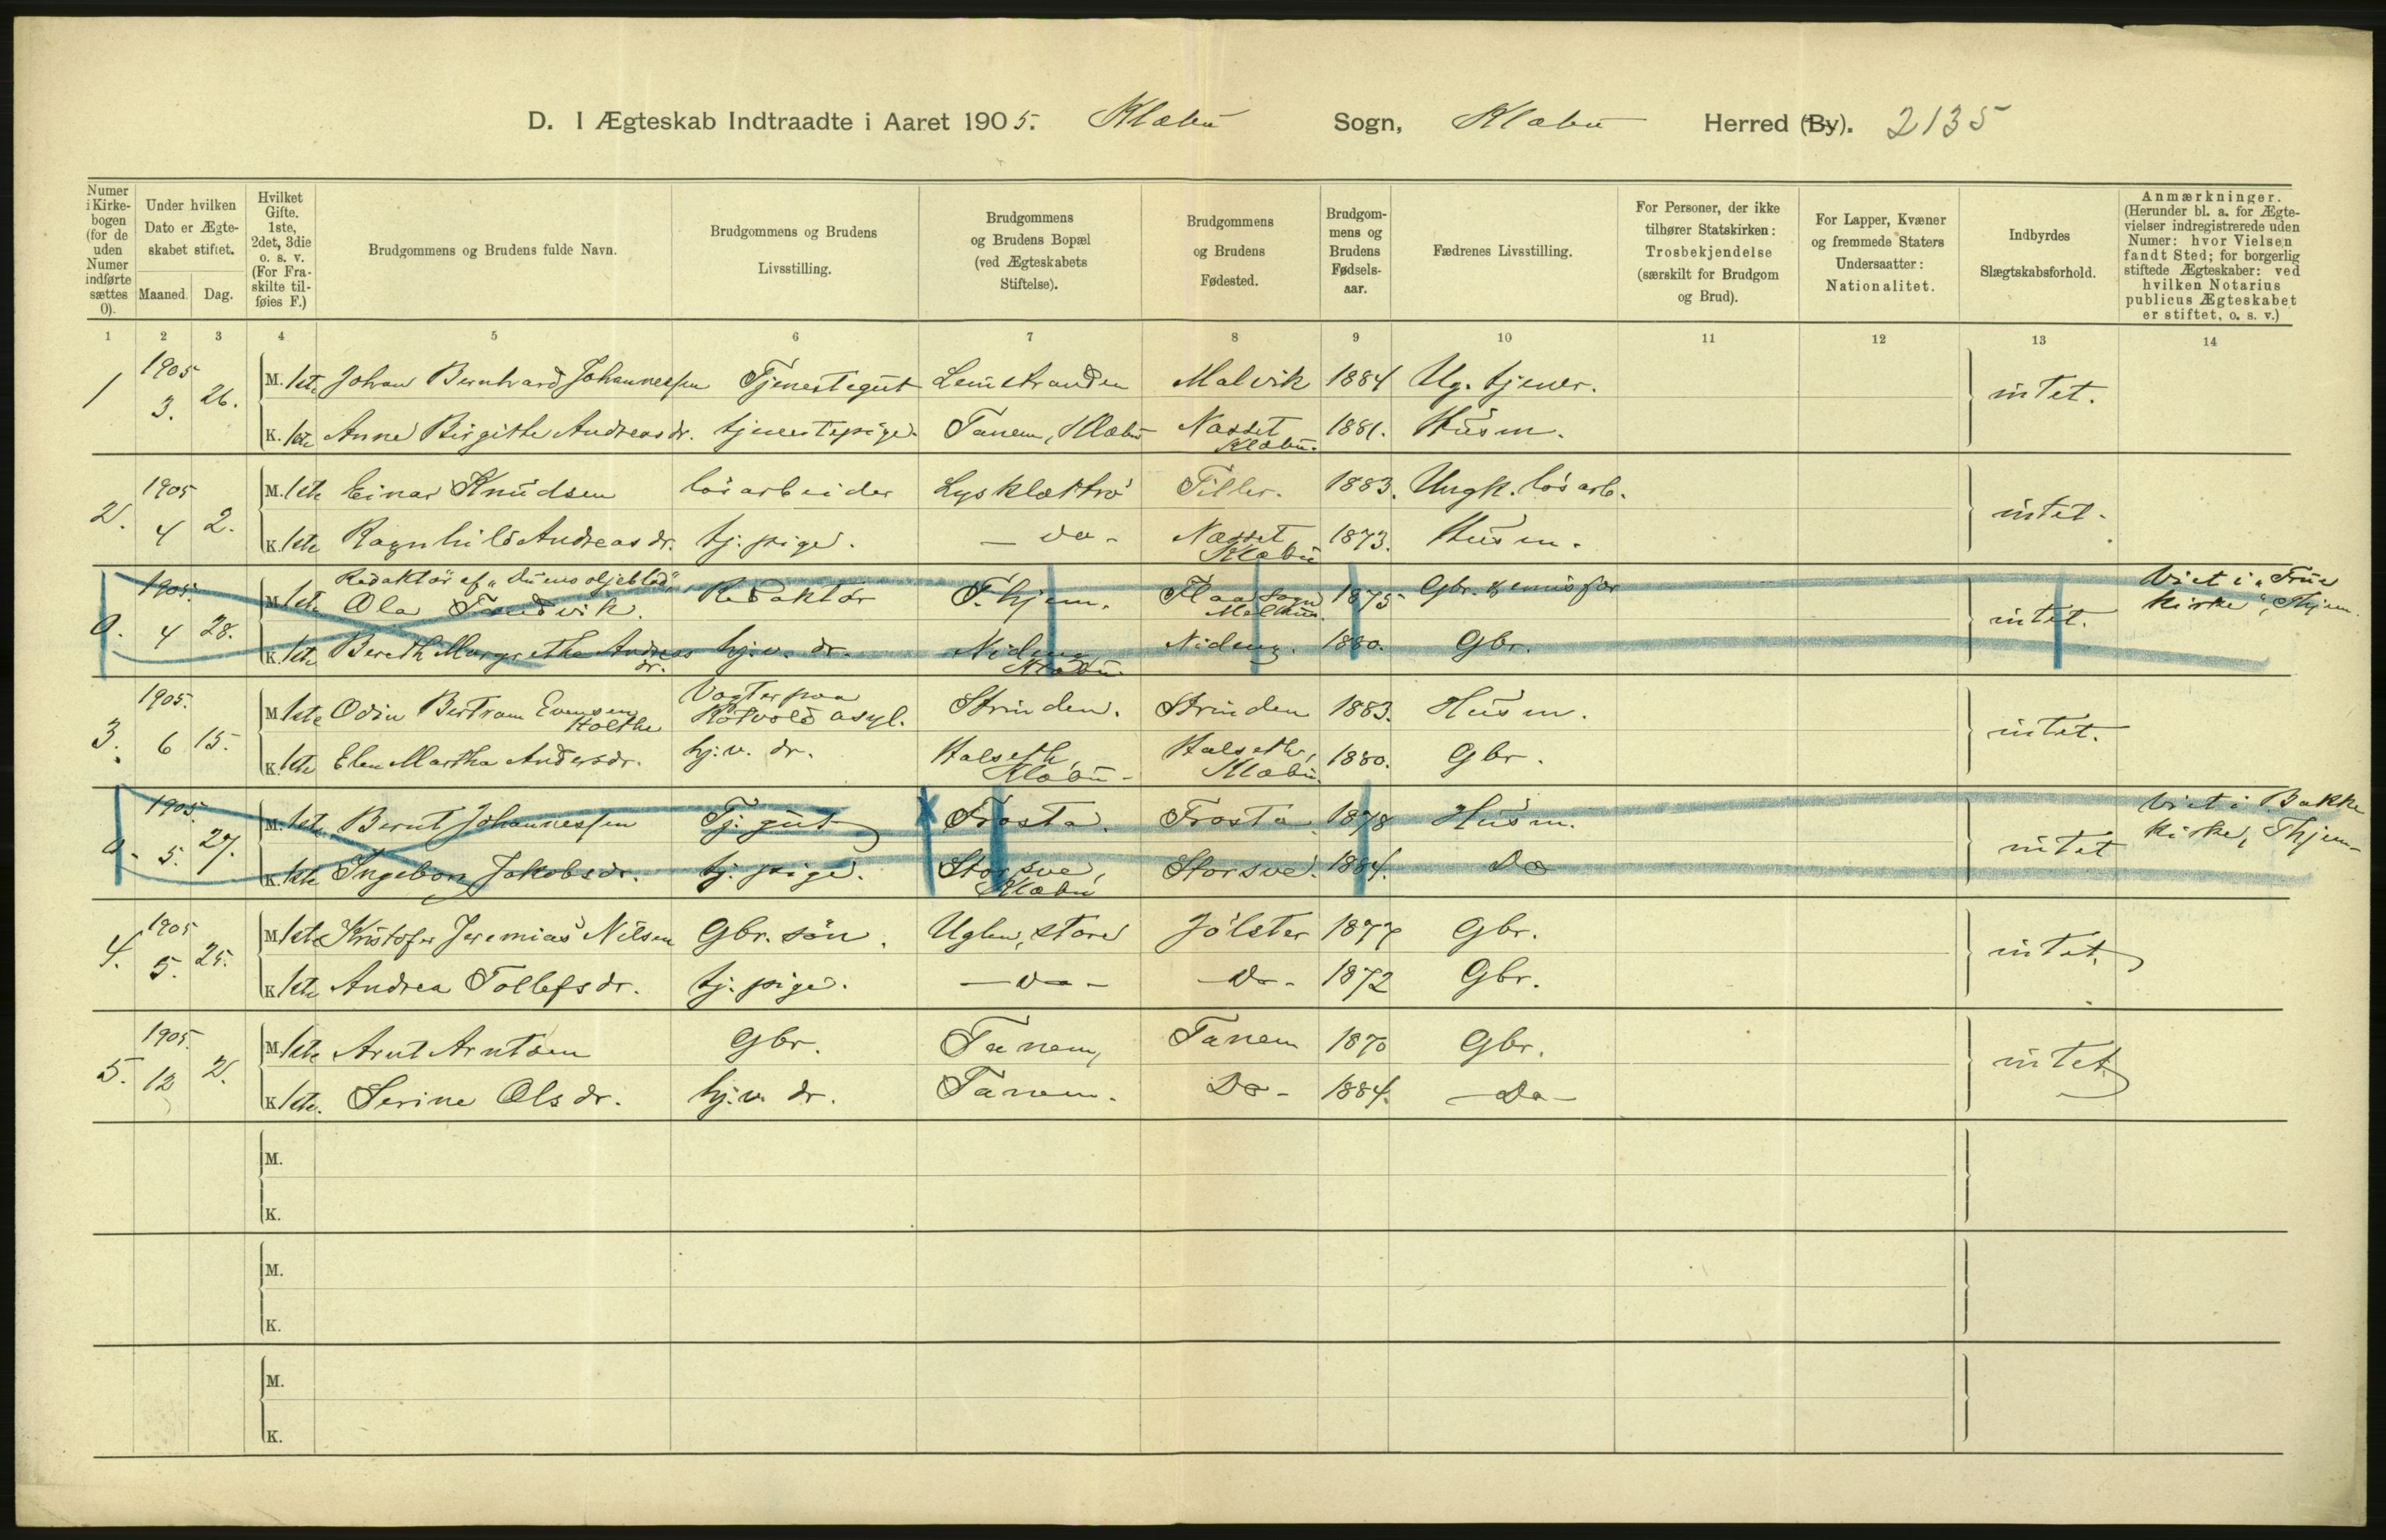 D. I Ægteskab Indtraadte i Aaret 1905. Klæbu Sogn, Klæbu Herred (By). 2135
Numer i Kirke- bogen (for de uden Numer indførte sættes 0).
Under hvilken Dato er Ægte- skabet stiftet.
Maaned. Dag.
Hvilket Gifte. 1ste, 2det, 3die o. s. v. (For Fra- skilte til- føies F.)
Brudgommens og Brudens fulde Navn.
Brudgommens og Brudens Livsstilling.
Brudgommens og Brudens Bopæl (ved Ægteskabets Stiftelse).
Brudgommens og Brudens Fødested.
Brudgom- mens og Brudens Fødsels- aar.
Fædrenes Livsstilling.
For Personer, der ikke tilhører Statskirken: Trosbekjendelse (særskilt for Brudgom og Brud).
For Lapper, Kvæner og fremmede Staters Undersaatter: Nationalitet.
Indbyrdes Slægtskabsforhold.
Anmærkninger. (Herunder bl. a. for Ægte- vielser indregistrerede uden Numer: hvor Vielsen fandt Sted; for borgerlig stiftede Ægteskaber: ved hvilken Notarius publicus Ægteskabet er stiftet, o. s. v.)
1 2 3 4 5 6 7 8 9 10 11 12 13 14
1 1905 3. 26. M. 1ste Johan Bernhard Johannessen Tjenestegut Leinstranden Malvik 1884 Ug. tjener. intet.
K. 1ste Anne Birgithe Andreasdr. tjenestepige. Tanem, Klæbu Næsset Klæbu. 1881. Husm.
2. 1905 4 2. M. 1ste Einar Knudsen løsarbeider Lysklætt Tiller. 1883. Ungk. løsarb. intet.
K. 1ste Ragnhild Andreasdr. tj. pige. - do - Næsset, Klæbu 1873. Husm.
0. 1905. 4 28. M. 1ste Redaktør af „ Ola Sandvik. Redaktør T.hjem. Flaa sogn Melhus. 1875 Gbr. intet. Viet i „Frue Kirke", Thjem.
K. 1ste Bereth Margrethe Andreas dr. hj.v. dr. Nideng Klæbu Nideng. 1880. Gbr.
3. 1905. 6 15. M. 1ste Odin Bertram Evensen Holthe Vogter paa Rotvold asyl. Strinden. Strinden 1883. Husm. intet.
K. 1ste Elen Martha Andersdr. hj.v. dr. Halseth, Klæbu - Halseth, Klæbu. 1880. Gbr.
0. 1905. 5. 27. M. 1ste Bernt Johannessen Tj. gut Frosta. Frosta 1878 Husm. intet Viet i Bakke Kirke, Thjem-
K. 1ste Ingeborg Jakobsdr. tj. pige. Storsve, Klæbu Storsve. 1884. Do
4. 1905 5. 25. M. 1ste Kristofer Jeremias Nilsen Gbr. søn. Uglen, store Jølster 1877 Gbr. intet.
K. 1ste Andrea Tollefsdr. tj. pige. - Do - - Do - 1872 Gbr.
5. 1905. 12 2. M. 1ste Arnt Arntsen Gbr. Tanem, Tanem 1870 Gbr. intet
K. 1ste. Serine Olsdr. hj.v. dr. Tanem. Do - 1884. - Do -
M.
K.
M.
K.
M.
K.